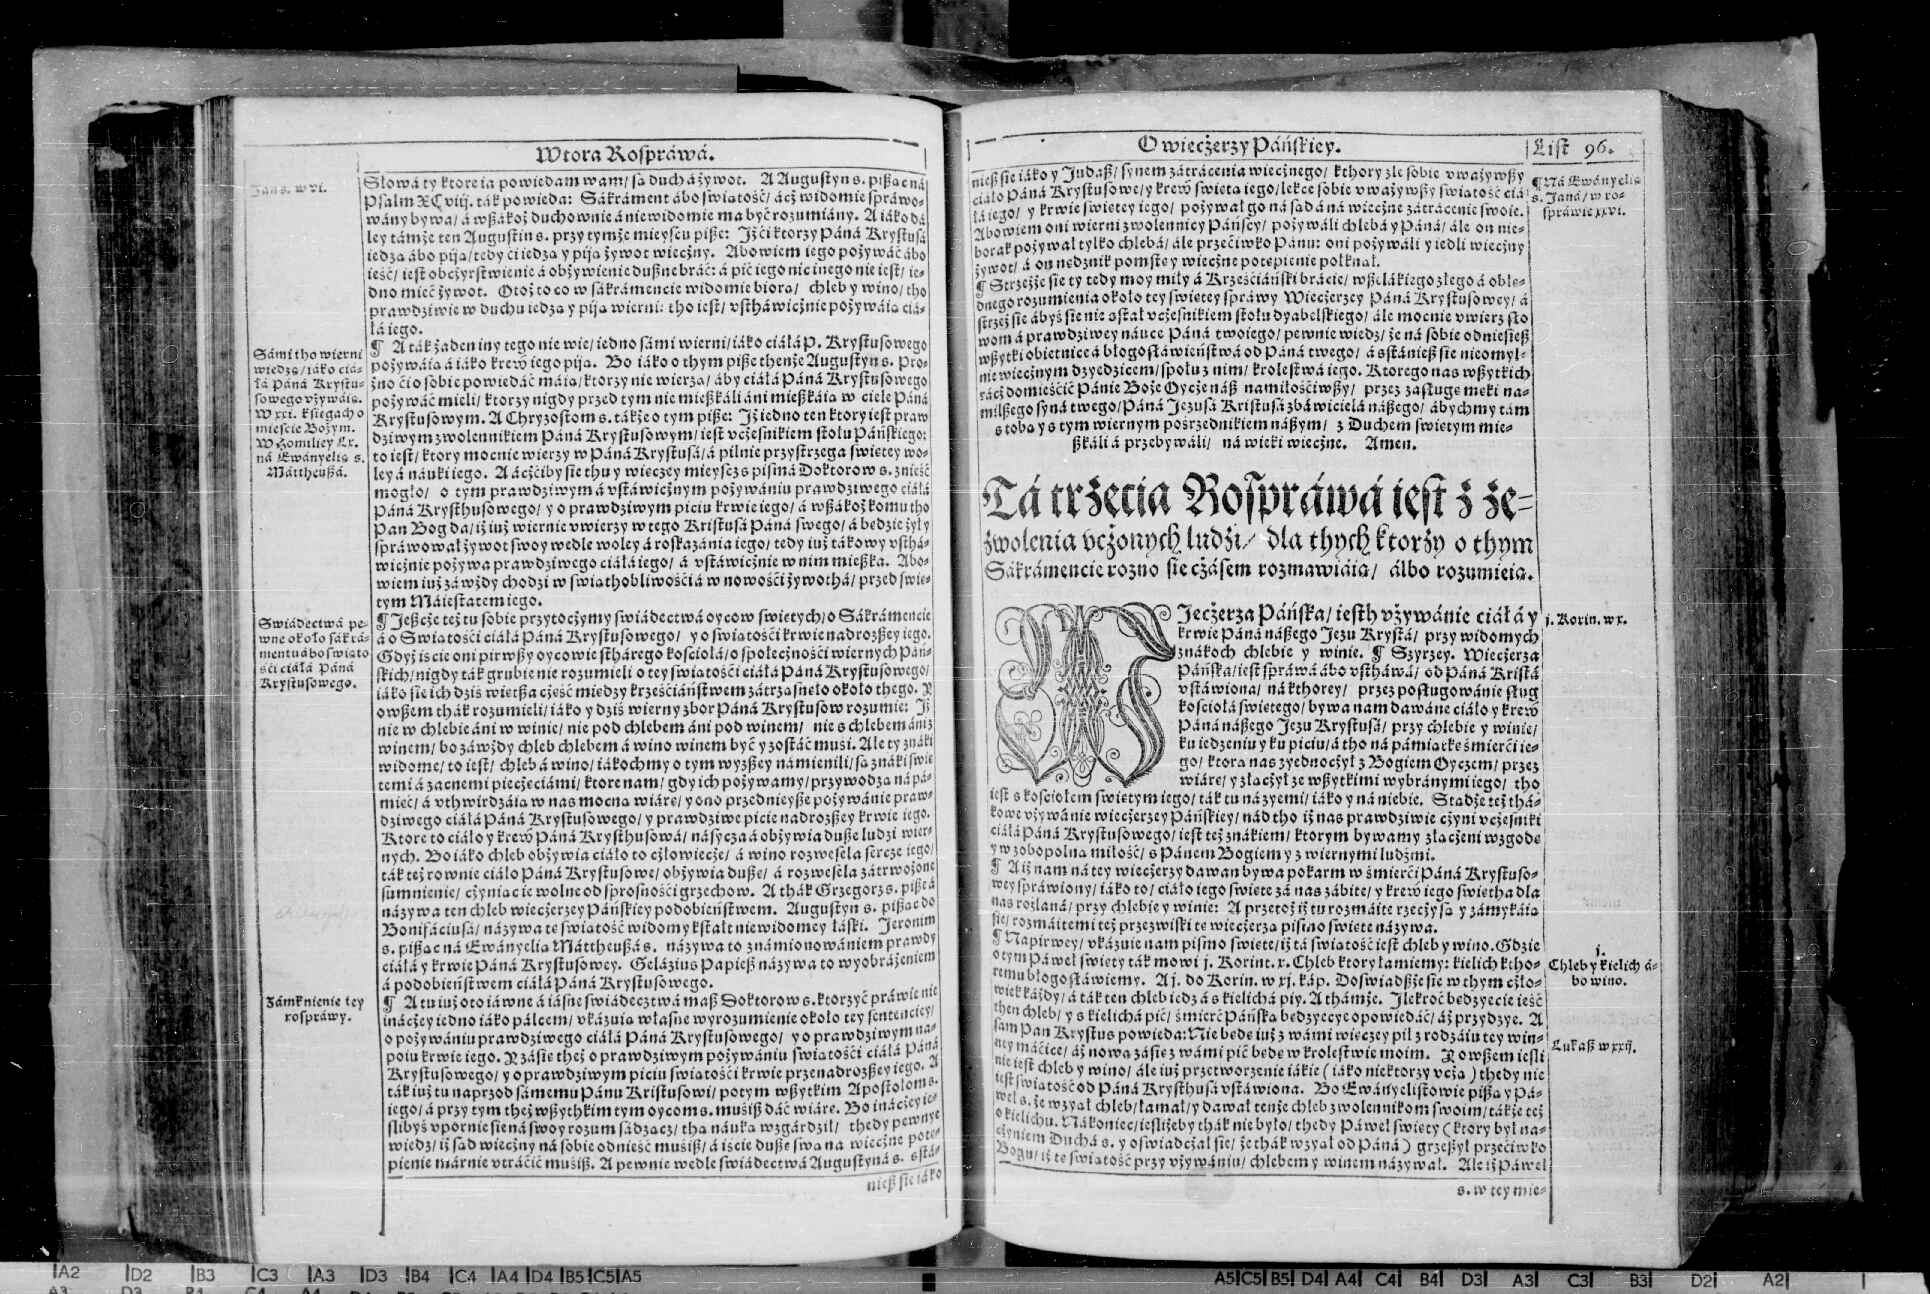 Wtora Rospráwá.
Jan s. w vi.
Słowá ty ktore ia powiedam wam/ są duch á żywot. A Augustyn s. pißąc ná
Psalm XCviij. ták powieda: Sákráment ábo swiatość/ ácż widomie spráwo-
wány bywa/ á wßákoż duchownie á niewidomie ma być rozumiány. A iáko dá
ley támże ten Augustin s. przy tymże mieyscu piße: Jżći ktorzy Páná Krystusá
iedzą ábo piją/ tedy ći iedzą y piją żywot wiecżny. Abowiem iego pożywáć ábo
ieść/ iest obcżyrstwienie á obżywienie dußne bráć: á pić iego nic inego nie iest/ ie-
dno mieć żywot. Otoż to co w sákrámencie widomie biorą/ chleb y wino/ tho
prawdziwie w duchu iedzą y piją wierni: tho iest/ vstháwicżnie pożywáią ciá-
łá iego.
¶ A ták żaden iny tego nie wie/ iedno sámi wierni/ iáko ciáłá P. Krystusowego
pożywáią á iáko krew iego piją. Bo iáko o thym piße thenże Augustyn s. Pro-
żno ći o sobie powiedáć máią/ ktorzy nie wierzą/ áby ciáłá Páná Krystusowego
pożywáć mieli/ ktorzy nigdy przed tym nie mießkáli áni mießkáią w ciele Páná
Krystusowym. A Chryzostom s. tákże o tym piße: Jż iedno ten ktory iest praw
dziwym zwolennikiem Páná Krystusowym/ iest vcżesnikiem stołu Páńskiego:
to iest/ ktory mocnie wierzy w Páná Krystusá/ á pilnie przystrzega swietey wo-
ley á náuki iego. A ácżćiby sie thu y wieczey mieyscz s pismá Doktorow s. znieść
mogło/ o tym prawdziwym á vstáwicżnym pożywániu prawdziwego ciáłá
Páná Krysthusowego/ y o prawdziwym piciu krwie iego/ á wßákoż komu tho
Pan Bog da/ iż iuż wiernie vwierzy w tego Kristusá Páná swego/ á bedzie żył y
spráwował żywot swoy wedle woley á roskazánia iego/ tedy iuż tákowy vsthá-
wicżnie pożywa prawdziwego ciáłá iego/ á vstáwicżnie w nim mießka. Abo-
wiem iuż záwżdy chodzi w swiathobliwośćiá w nowośći żywothá/ przed swie-
tym Máiestatem iego.
¶ Jeßcże też tu sobie przytocżymy swiádectwá oycow swietych/ o Sákrámencie
á o Swiatośći ciáłá Páná Krystusowego/ y o swiatośći krwie nadrożßey iego.
Gdyż iscie oni pirwßy oycowie sthárego kośćiołá/ o społecżnośći wiernych Páń-
skich/ nigdy ták grubie nie rozumieli o tey swiatośći ciáłá Páná Krystusowego/
iáko sie ich dziś wietßa cżeść miedzy krześćiáństwem zátrzasneło około thego. Y
owßem thák rozumieli/ iáko y dziś wierny zbor Páná Krystusow rozumie: Jż
nie w chlebie áni w winie/ nie pod chlebem áni pod winem/ nie s chlebem áni z
winem/ bo záwżdy chleb chlebem á wino winem być y zostáć musi. Ale ty znáki
widome/ to iest/ chleb á wino/ iákochmy o tym wyzßey námienili/ są znáki swie
temi á zacnemi piecżećiámi/ ktore nam/ gdy ich pożywamy/ przywodzą ná pá-
mieć/ á vthwirdzáią w nas mocną wiáre/ y ono przednieyße pożywánie praw-
dziwego ciáłá Páná Krystusowego/ y prawdziwe picie nadrożßey krwie iego.
Ktore to ciáło y krew Páná Krysthusowá/ násyca á obżywia duße ludzi wier-
nych. Bo iáko chleb obżywia ciáło to cżłowiecże/ á wino rozwesela sercze iego/
ták też rownie ciáło Páná Krystusowe/ obżywia duße/ á rozwesela zátrwożone
sumnienie/ cżyniac ie wolne od sprosnośći grzechow. A thák Grzegorz s. piße á
názywa ten chleb wiecżerzey Páńskiey podobieństwem. Augustyn s. pißąc do
Bonifáciusá/ názywa te swiatość widomy kstałt niewidomey łáski. Jeronim
s. pißąc ná Ewányelią Máttheußá s. názywa to známionowániem prawdy
ciáłá y krwie Páná Krystusowey. Gelázius Papież názywa to wyobráżeniem
á podobieństwem ciáłá Páná Krystusowego.
¶ A tu iuż oto iáwne á iásne swiádecztwá maß Doktorow s. ktorzyć práwie nie
inácżey iedno iáko pálcem/ vkázuią własne wyrozumienie około tey sentenciey/
o pożywániu prawdziwego ciáłá Páná Krystusowego/ y o prawdziwym ná-
poiu krwie iego. Y zásie theż o prawdziwym pożywániu swiatośći ciáłá Páná
Krystusowego/ y o prawdziwym piciu swiatośći krwie przenadrożßey iego. A
ták iuż tu naprzod sámemu Pánu Kristusowi/ potym wßytkim Apostołom s.
iego/ á przy tym też wßythkim tym oycom s. musiß dáć wiáre. Bo inácżey ie-
slibyś vpornie sie ná swoy rozum sádzácz/ tha náuką wzgárdził/ thedy pewnye
wiedz/ iż sąd wiecżny ná sobie odnieść musiß/ á iście duße swą ná wiecżne pote-
pienie márnie vtráćić musiß. A pewnie wedle swiádectwá Augustyná s. sstá-
nieß sie iáko
Sámi tho wierni
wiedzą/ iáko ciá-
łá Páná Krystu-
sowego vżywáią.
W xxi. ksiegách o
mieście Bożym.
W Homiliey Lx.
ná Ewányelią s.
Máttheußá.
Swiádectwá pe-
wne około sákrá-
mentu ábo swiáto
śći ciáłá Páná
Krystusowego.
Zámknienie tey
rospráwy.
O wiecżerzy Páńskiey.
List 96.
nieß sie iáko y Judaß/ synem zátrácenia wiecżnego/ kthory zle sobie vważywßy
ciáło Páná Krystusowe/ y krew swieta iego/ lekce sobie vważywßy swiatość ciá
łá iego/ y krwie swietey iego/ pożywał go ná sąd á ná wiecżne zátrácenie swoie.
Abowiem oni wierni zwolennicy Páńscy/ pożywáli chlebá y Páná/ ále on nie-
borak pożywał tylko chlebá/ ále przećiwko Pánu: oni pożywáli y iedli wiecżny
żywot/ á on nedznik pomste y wiecżne potepienie połknął.
¶ Strzeżże sie ty tedy moy miły á Krześćiáński brácie/ wßelákiego złego á obłe-
dnego rozumienia około tey swietey spráwy Wiecżerzey Páná Krystusowey/ á
strzeż sie ábyś sie nie sstał vcżesnikiem stołu dyabelskiego/ ále mocnie vwierz sło
wom á prawdziwey náuce Páná twoiego/ pewnie wiedz/ że ná sobie odniesieß
wßytki obietnice á błogosłáwieństwá od Páná twego/ á sstánieß sie nieomyl-
nie wiecżnym dzyedzicem/ społu z nim/ krolestwá iego. Ktorego nas wßytkich
rácż domieśćić Pánie Boże Oycże náß namiłośćiwßy/ przez zasługe meki na-
milßego syná twego/ Páná Jezusá Kristusá zbáwicielá náßego/ ábychmy tám
s tobą y s tym wiernym pośrzednikiem náßym/ z Duchem swietym mie-
ßkáli á przebywáli/ ná wieki wiecżne. Amen.
Tá trzecia Rospráwá iest z ze-
zwolenia vcżonych ludzi/ dla thych ktorzy o thym
Sákrámencie rozno sie cżásem rozmawiáią/ álbo rozumieią.
WJecżerza Páńska/ iesth vżywánie ciáłá y
krwie Páná náßego Jezu Krystá/ przy widomych
znákoch chlebie y winie. ¶ Szyrzey. Wiecżerza
Páńska/ iest spráwá ábo vstháwá/ od Páná Kristá
vstáwiona/ ná kthorey/ przez posługowánie sług
kośćiołá swietego/ bywa nam dawáne ciáło y krew
Páná náßego Jezu Krystusá/ przy chlebie y winie/
ku iedzeniu y ku piciu/ á tho ná pámiątke śmierći ie-
go/ ktora nas zyednocżył z Bogiem Oyczem/ przez
wiáre/ y złącżył ze wßytkimi wybránymi iego/ tho
iest s kośćiołem swietym iego/ ták tu ná zyemi/ iáko y ná niebie. Stądże też thá-
kowe vżywánie wiecżerzey Páńskiey/ nád tho iż nas prawdziwie cżyni vcżesniki
ciáłá Páná Krystusowego/ iest też znákiem/ ktorym bywamy złącżeni w zgode
y w zobopolną miłość/ s Pánem Bogiem y z wiernymi ludźmi.
¶ A iż nam ná tey wiecżerzy dawan bywa pokarm w śmierći Páná Krystuso-
wey spráwiony/ iáko to/ ciáło iego swiete zá nas zábite/ y krew iego swietha dla
nas rozlana/ przy chlebie y winie: A przetoż iż tu rozmáite rzecży są y zámykáią
sie/ rozmáitemi też przezwiski te wiecżerza pismo swiete názywa.
¶ Napirwey/ vkázuie nam pismo swiete/ iż tá swiatość iest chleb y wino. Gdzie
o tym Páweł swiety ták mowi j. Korint. x. Chleb ktory łamiemy: kielich ktho-
remu błogosłáwiemy. A j. do Korin. w xj. káp. Doswiadßże sie w thym cżło-
wiek káżdy/ á ták ten chleb iedz á s kielichá piy. A thámże. Jlekroć bedzyecie ieść
then chleb/ y s kielichá pić/ śmierć Páńską bedzyecye opowiedáć/ áż przydzye. A
sam Pan Krystus powieda: Nie bede iuż z wámi wiecżey pił z rodzáiu tey win-
ney máćice/ áż nową zásie z wámi pić bede w krolestwie moim. Y owßem iesli
nie iest chleb y wino/ ále iuż przetworzenie iákie (iáko niektorzy vcżą) thedy nie
iest swiatość od Páná Krysthusá vstáwiona. Bo Ewányelistowie pißą y Pá-
weł s. że wzyął chleb/ łamał/ y dawał tenże chleb zwolennikom swoim/ tákże też
o kielichu. Nákoniec/ iesliżeby thák nie było/ thedy Páweł swiety (ktory był ná-
cżyniem Duchá s. y oswiadcżał sie/ że thák wzyął od Páná) grzeßył przećiwko
Bogu/ iż te swiatość przy vżywániu/ chlebem y winem názywał. Ale iż Páweł
s. w tey mie-
¶ Ná Ewányelią
s. Janá/ w ro-
spráwie xxvi.
j. Korin. w x.
j.
Chleb y kielich á-
bo wino.
Lukaß w xxij.
A2 D2 B3 C3 A3 D3 B4 C4 A4 D4 B5 C5 A5
A5 C5 B5 D4 A4 C4 B4 D3 A3 C3 B3 D2 A2